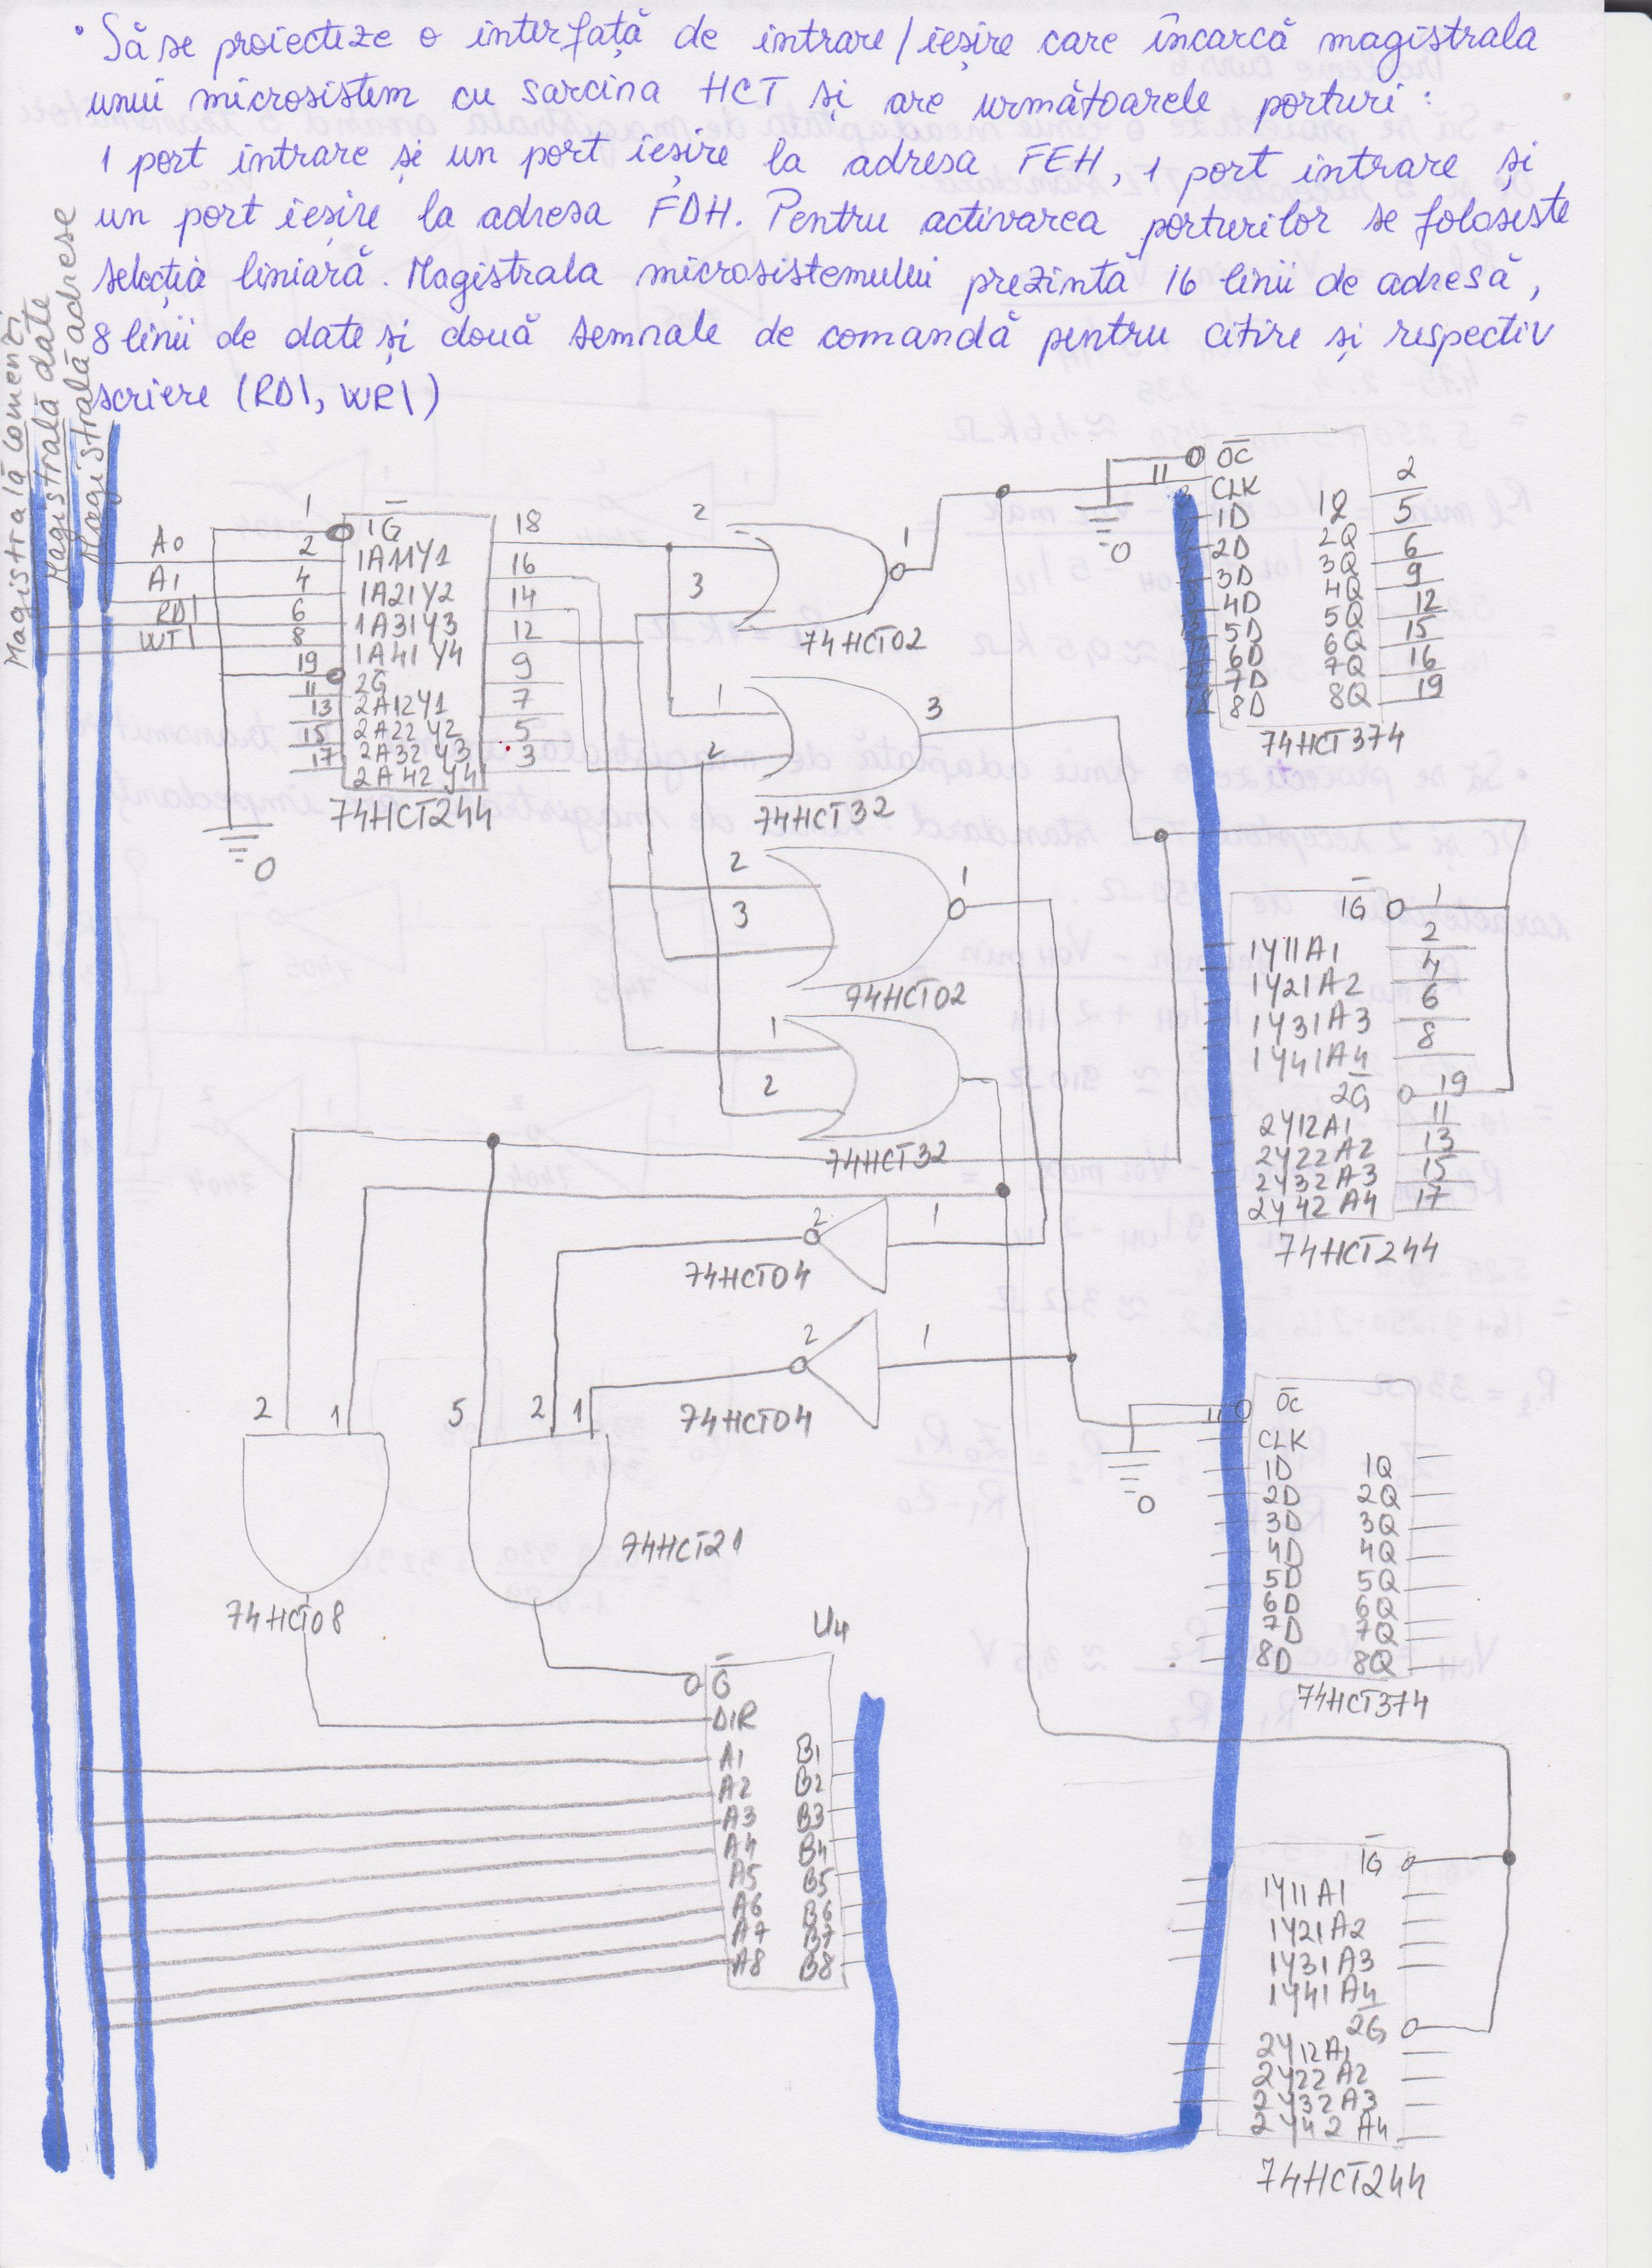 • Să se proiecteze o interfață de intrare/ieșire care încarcă magistrala
unui microsistem cu sarcina HCT și are următoarele porturi:
1 port intrare și un port ieșire la adresa FEH, 1 port intrare și
un port ieșire la adresa FDH. Pentru activarea porturilor se folosește
selecția liniară. Magistrala microsistemului prezintă 16 linii de adresă,
8 linii de date și două semnale de comandă pentru citire și respectiv
scriere (RD\, WR\)
Magistrală comenzi
Magistrală date
Magistrală adrese
A0
A1
RD\
WT\
1
2
4
6
8
19
11
13
15
17
1G
1A11Y1
1A21Y2
1A31Y3
1A41Y4
2G
2A12Y1
2A22Y2
2A32Y3
2A42Y4
18
16
14
12
9
7
5
3
74HCT244
0
2
3
1
74HCT02
1
2
3
74HCT32
2
3
1
74HCT02
1
2
74HCT32
0
11
OC
CLK
1D 1Q
2D 2Q
3D 3Q
4D 4Q
5D 5Q
6D 6Q
7D 7Q
8D 8Q
2
5
6
9
12
15
16
19
74HCT374
1G 1
1Y11A1 2
1Y21A2 4
1Y31A3 6
1Y41A4 8
2G 19
2Y12A1 11
2Y22A2 13
2Y32A3 15
2Y42A4 17
74HCT244
2 1
74HCT04
2 1
74HCT04
2 1
5 2 1
74HCT08
74HCT21
0
11
OC
CLK
1D 1Q
2D 2Q
3D 3Q
4D 4Q
5D 5Q
6D 6Q
7D 7Q
8D 8Q
74HCT374
U4
G
DIR
A1 B1
A2 B2
A3 B3
A4 B4
A5 B5
A6 B6
A7 B7
A8 B8
1G
1Y11A1
1Y21A2
1Y31A3
1Y41A4
2G
2Y12A1
2Y22A2
2Y32A3
2Y42A4
74HCT244